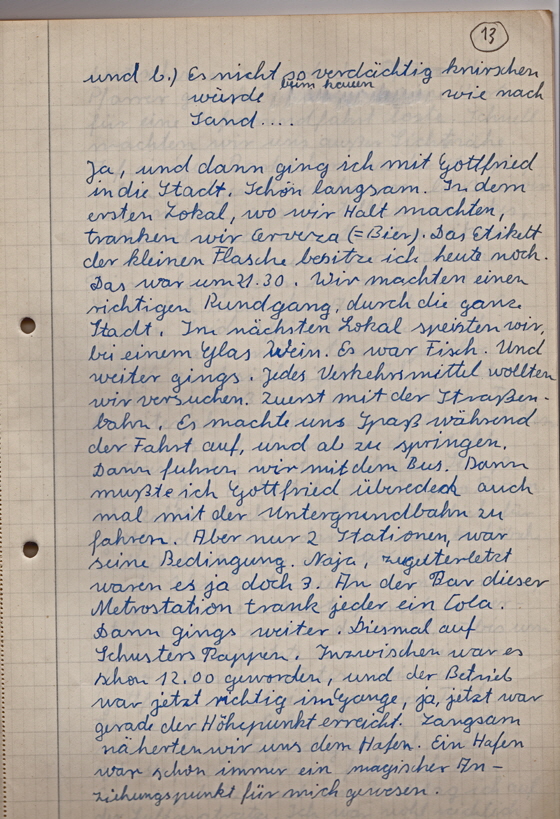 13
und b.) Es nicht so verdächtig knirschen
würde beim kauen wie nach
Sand....
Ja, und dann ging ich mit Gottfried
in die Stadt. Schön langsam. In dem
ersten Lokal, wo wir Halt machten,
tranken wir Cerveza (=Bier). Das Etikett
der kleinen Flasche besitze ich heute noch.
Das war um 21.30. Wir machten einen
richtigen Rundgang, durch die ganze
Stadt. Im nächsten Lokal speisten wir,
bei einem Glas Wein. Es war Fisch. Und
weiter gings. Jedes Verkehrsmittel wollten
wir versuchen. Zuerst mit der Straßen-
bahn. Es machte uns Spaß während
der Fahrt auf, und ab zu springen.
Dann fuhren wir mit dem Bus. Dann
mußte ich Gottfried überreden auch
mal mit der Untergrundbahn zu
fahren. Aber nur 2 Stationen, war
seine Bedingung. Naja, zuguterletzt
waren es ja doch 3. An der Bar dieser
Metrostation trank jeder ein Cola.
Dann gings weiter. Diesmal auf
Schusters Rappen. Inzwischen war es
schon 12.00 geworden, und der Betrieb
war jetzt richtig im Gange, ja, jetzt war
gerade der Höhepunkt erreicht. Langsam
näherten wir uns dem Hafen. Ein Hafen
war schon immer ein magischer An-
ziehungspunkt für mich gewesen.